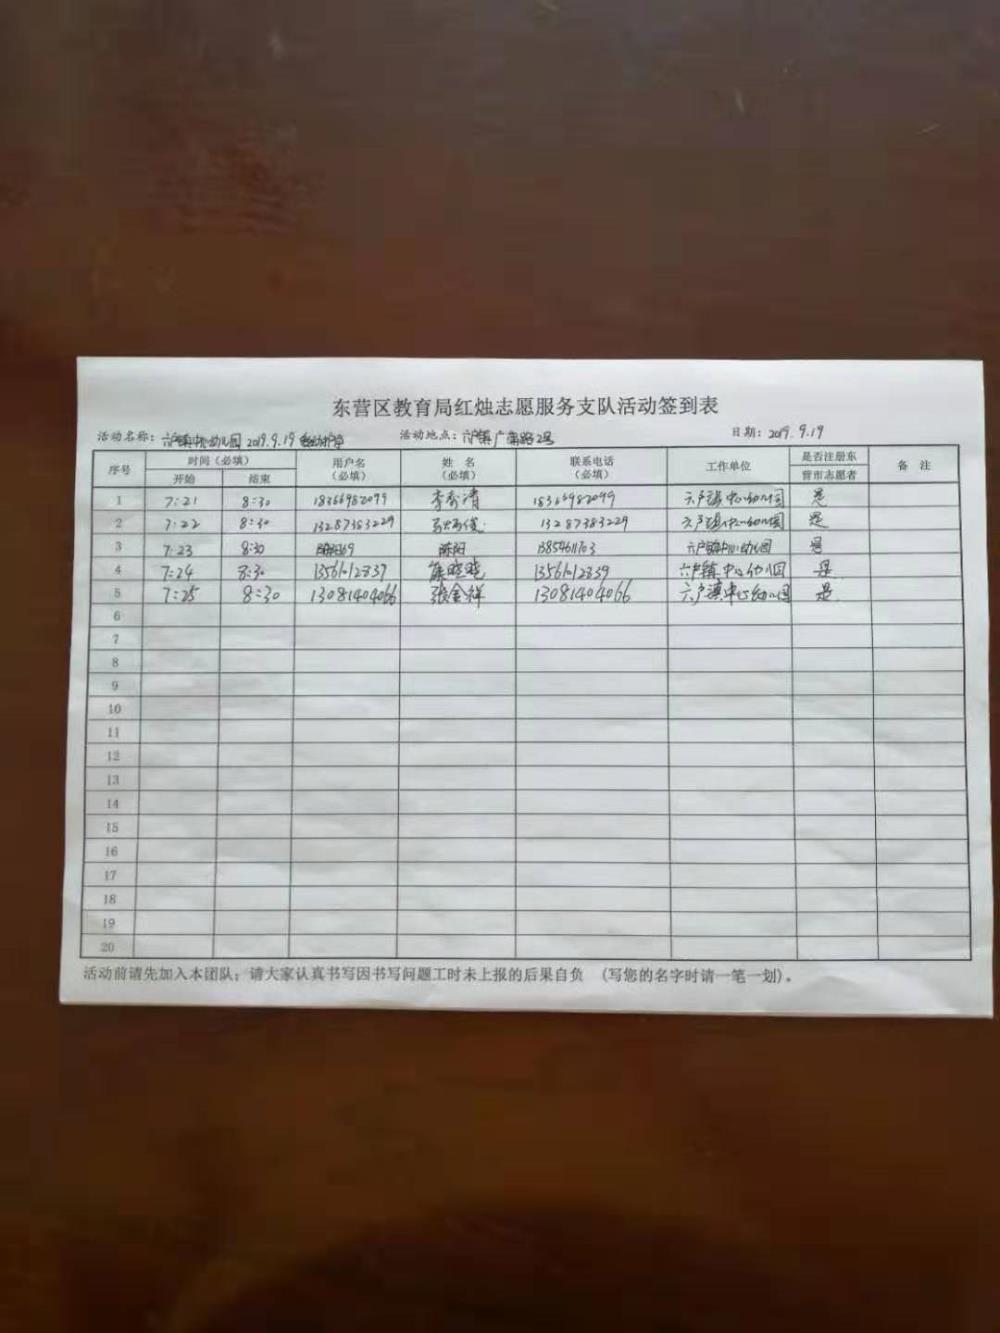 东营区教育局红烛志愿服务支队活动签到表
活动名称：六户镇中心幼儿园 2019.9.19 活动地点：六户镇广南路2号 日期：2019.9.19
序号 时间（必填） 用户名（必填） 姓名（必填） 联系电话（必填） 工作单位 是否注册东营市志愿者 备注
开始 结束
1 7:21 8:30 18366982099 李秀清 18366982099 六户镇中心幼儿园 是
2 7:22 8:30 13287383229 13287383229 六户镇中心幼儿园 是
3 7:23 8:30 陈阳 13854611703 六户镇中心幼儿园 是
4 7:24 8:30 13561012839 13561012839 六户镇中心幼儿园 是
5 7:25 8:30 13081404066 张金祥 13081404066 六户镇中心幼儿园 是
6
7
8
9
10
11
12
13
14
15
16
17
18
19
20
活动前请先加入本团队；请大家认真书写因书写问题工时未上报的后果自负 （写您的名字时请一笔一划）。